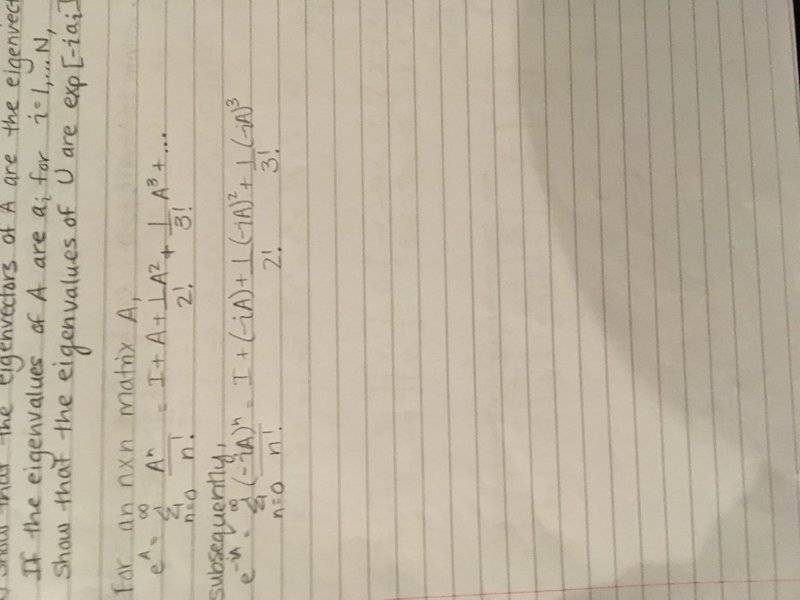 show that the eigenvectors of A are the eigenvect
If the eigenvalues of A are aᵢ for i=1,...N,
Show that the eigenvalues of U are exp[-iaᵢ]
For an nxn matrix A,
e^A = ∑_{n=0}^∞ A^n/n! = I + A + 1/2! A² + 1/3! A³ + ...
subsequently,
e^{-iA} = ∑_{n=0}^∞ (-iA)^n/n! = I + (-iA) + 1/2! (-iA)² + 1/3! (-iA)³